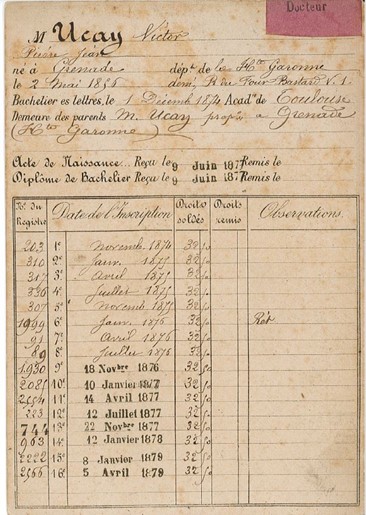 Docteur
M Ucay Victor
Pierre Jean
né à Grenade dépt de la Hte Garonne
le 2 Mai 1856 domi. R du Four Bastard N. 1.
Bachelier es lettres, le 1 Décemb 1874 Acad. de Toulouse
Demeure des parents M. Ucay propre a Grenade
(Hte Garonne)
Acte de Naissance... Reçu le 9 Juin 187 Remis le
Diplôme de Bachelier Reçu le 9 Juin 187 Remis le
No. du Registre Date de l'Inscription Droits soldés Droits remis Observations
203 1e Novemb. 1874 32 50
310 2e Janv. 1875 32 50
317 3e Avril 1875 32 50
336 4e Juillet 1875 32 50
307 5e Novemb 1875 32 50
1999 6e Janv. 1876 32 50
91 7e Avril 1876 32 50
89 8e Juillet 1876 32 50
1930 9e 18 Novbre 1876 32 50
2081 10e 10 Janvier 1877 32 50
2554 11e 14 Avril 1877 32 50
223 12e 12 Juillet 1877 32 50
744 13e 22 Novbre 1877 32 50
963 14e 12 Janvier 1878 32 50
2222 15e 8 Janvier 1879 32 50
2566 16e 5 Avril 1879 32 50